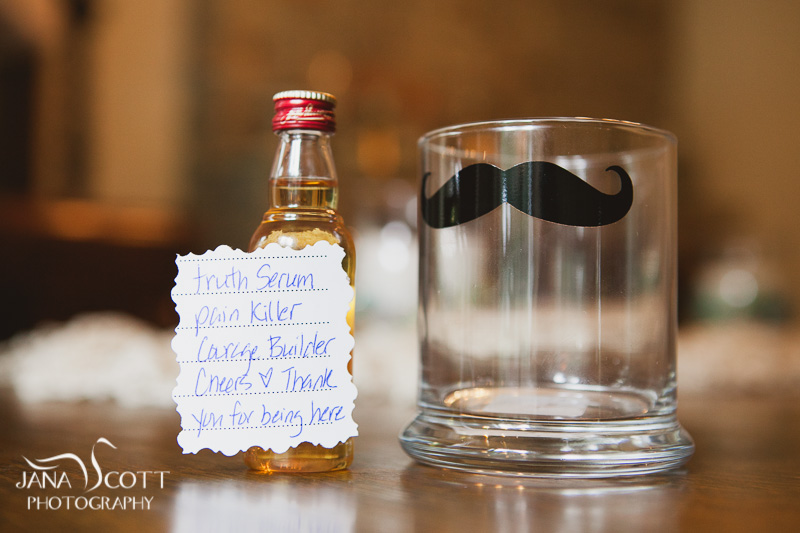 truth Serum
pain Killer
Courage Builder
Cheers ♡ Thank
you for being here
JANA SCOTT
PHOTOGRAPHY